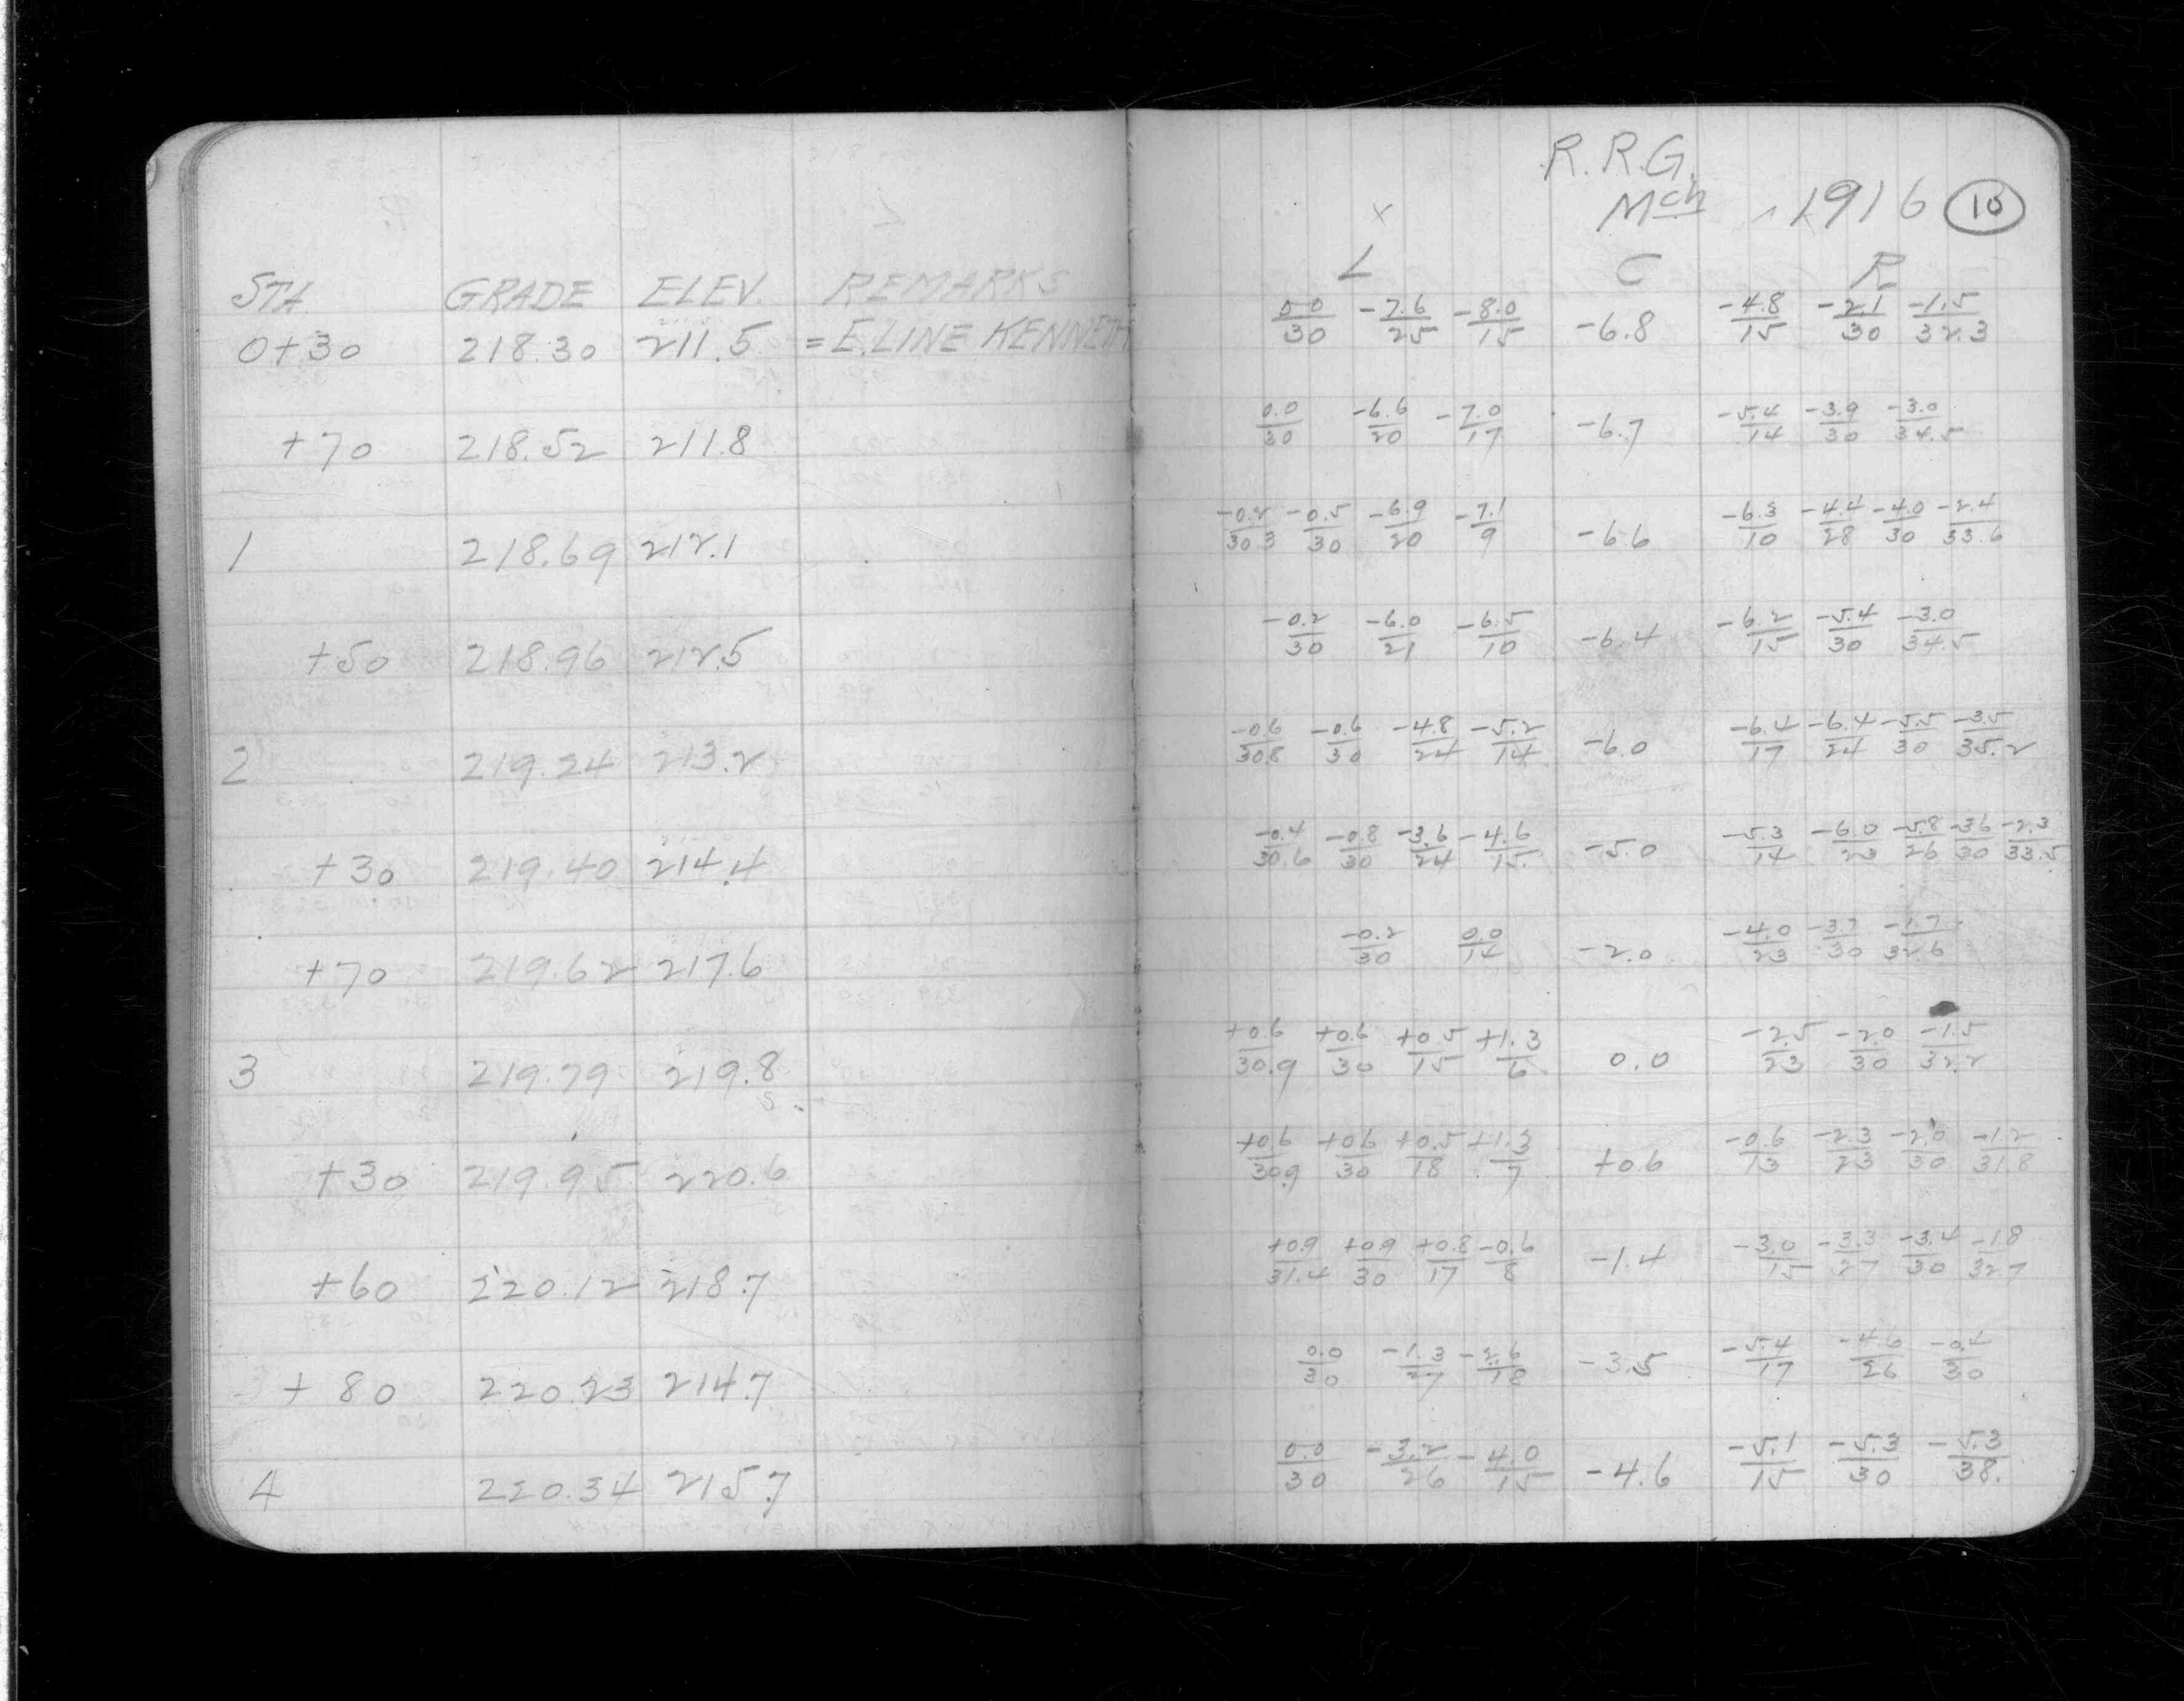 R.R.G.
Mch 1916 10
STA. GRADE ELEV. REMARKS L C R
0+30 218.30 211.5 = E. LINE KENNETH 0.0/30 -7.6/25 -8.0/15 -6.8 -4.8/15 -2.1/30 -1.5/32.3
+70 218.52 211.8 0.0/30 -6.6/20 -7.0/17 -6.7 -5.4/14 -3.9/30 -3.0/34.5
1 218.69 212.1 -0.2/30.3 -0.5/30 -6.9/20 -7.1/9 -6.6 -6.3/10 -4.4/28 -4.0/30 -2.4/33.6
+50 218.96 212.5 -0.2/30 -6.0/21 -6.5/10 -6.4 -6.2/15 -5.4/30 -3.0/34.5
2 219.24 213.2 -0.6/30.8 -0.6/30 -4.8/24 -5.2/14 -6.0 -6.4/17 -6.4/24 -5.5/30 -3.5/35.2
+30 219.40 214.4 -0.4/30.6 -0.8/30 -3.6/24 -4.6/15 -5.0 -5.3/14 -6.0/23 -5.8/26 -3.6/30 -2.3/33.5
+70 219.62 217.6 -0.2/30 0.0/14 -2.0 -4.0/23 -3.7/30 -1.7/32.6
3 219.79 219.8 +0.6/30.9 +0.6/30 +0.5/15 +1.3/6 0.0 -2.5/23 -2.0/30 -1.5/32.2
+30 219.95 220.6 +0.6/30.9 +0.6/30 +0.5/18 +1.3/7 +0.6 -0.6/13 -2.3/23 -2.0/30 -1.2/31.8
+60 220.12 218.7 +0.9/31.4 +0.9/30 +0.8/17 -0.6/8 -1.4 -3.0/15 -3.3/27 -3.4/30 -1.8/32.7
+80 220.23 214.7 0.0/30 -1.3/27 -2.6/18 -3.5 -5.4/17 -4.6/26 -0.4/30
4 220.34 215.7 0.0/30 -3.2/26 -4.0/15 -4.6 -5.1/15 -5.3/30 -5.3/38.